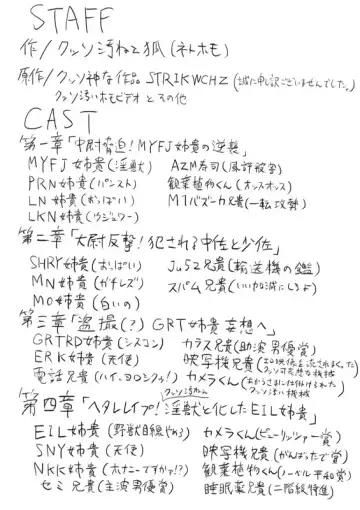 STAFF
作/クッソ汚ねえ狐(ネトホモ)
原作/クッソ神な作品 STRIKWCHZ (誠に申し訳ございませんでした。)
クッソ汚いホモビデオ とその他
CAST
第一章「中尉脅迫!MYFJ姉貴の逆襲」
MYFJ姉貴(淫獣) AZM寿司(風評被害)
PRN姉貴(パンスト) 観葉植物くん(オッスオッス)
LN姉貴(おっぱい) M1バズーカ兄貴(一転攻勢)
LKN姉貴(ウジュワー)
第二章「大尉反撃!犯される中佐と少佐」
SHRY姉貴(おっぱい) Ju52兄貴(輸送機の鑑)
MN姉貴(ガチレズ) スパム兄貴(いい加減にしろよ)
MO姉貴(白いの)
第三章「盗撮(?) GRT姉貴 妄想へ」
GRTRD姉貴(シスコン) カラス兄貴(助演男優賞)
ERK姉貴(天使) 映写機兄貴(エロ映像を流されまくったクッソ可哀想な機械)
電話兄貴(ハイ、ヨロシクゥ!) カメラくん(おかうさまに仕掛けられたクッソ汚い機械)
第四章「ヘタレレイプ!クッソ汚らわしい淫獣と化したEIL姉貴」
EIL姉貴(野獣目線やめろ) カメラくん(ピューリッツァー賞)
SNY姉貴(天使) 映写機兄貴(がんばったで賞)
NKK姉貴(ホナニーですかぁ!?) 観葉植物くん(ノーベル平和賞)
セミ兄貴(主演男優賞) 睡眠薬兄貴(二階級特進)